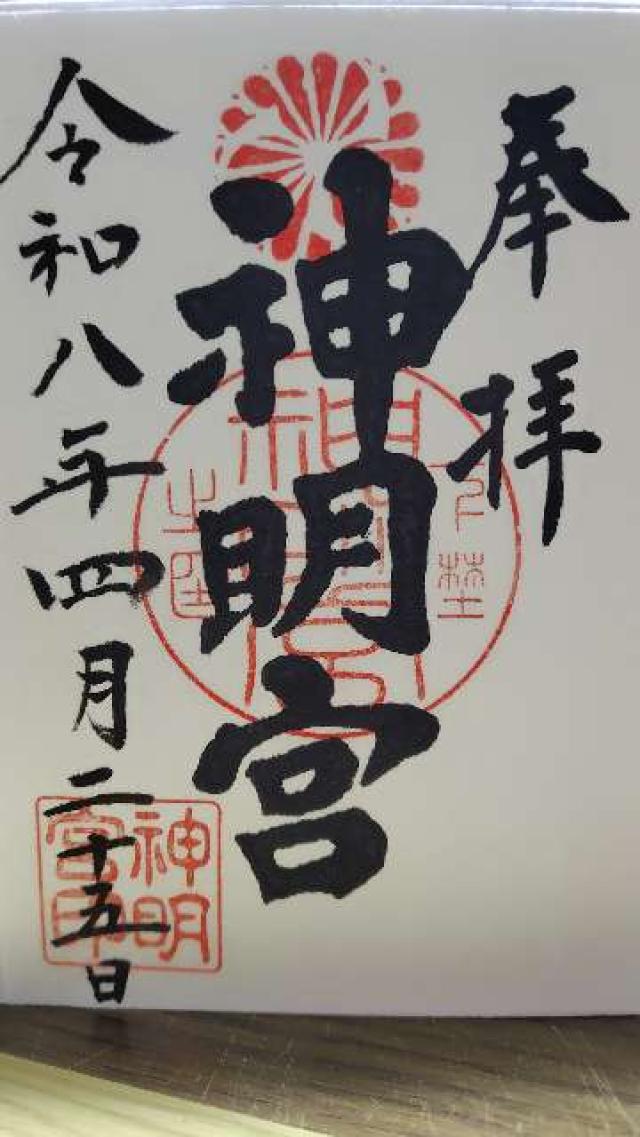 奉拝
神明宮
令和八年四月二十五日
神明
宮印